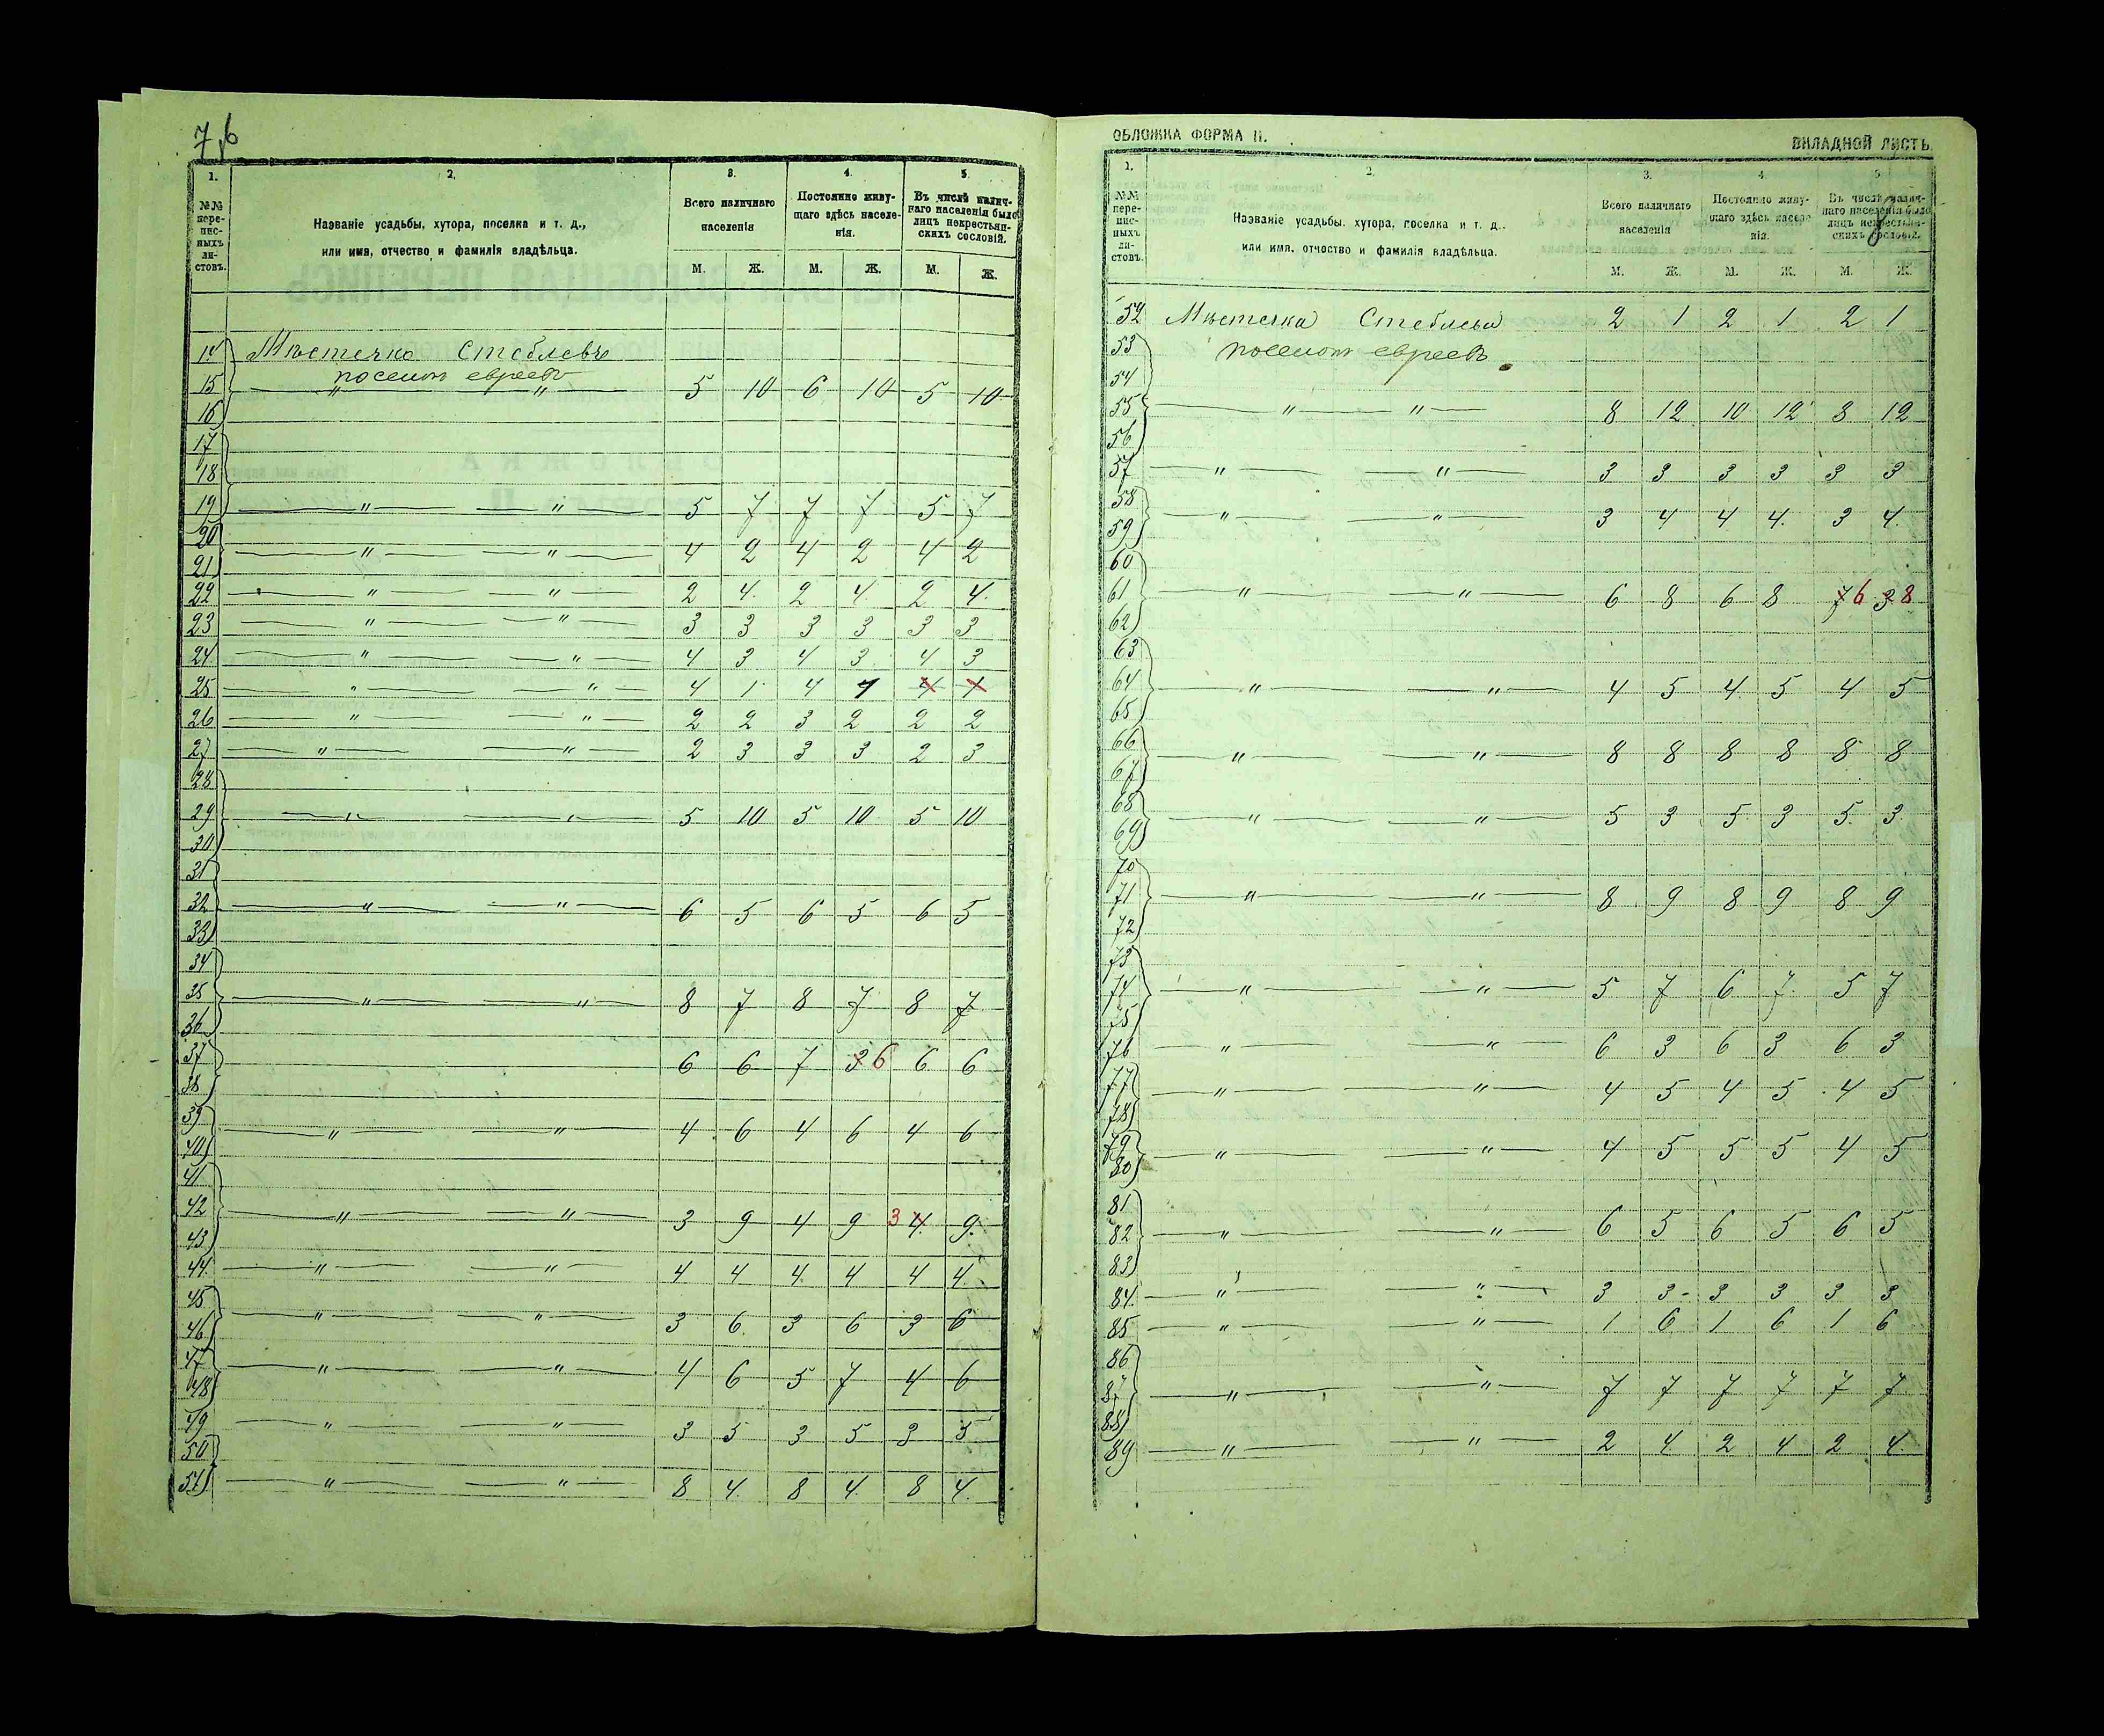 7,б
1. 2. 3. 4. 5.
№№ пере-пис-ныхъ ли-стовъ.
Названіе усадьбы, хутора, поселка и т. д.,
или имя, отчество и фамилія владѣльца.
Всего наличнаго населенія
Постоянно живу-щаго здѣсь населе-нія.
Въ числѣ налич-наго населенія было лицъ некрестьян-скихъ сословій.
М. Ж. М. Ж. М. Ж.
14 Мѣстечко Стеблевъ
поселокъ евреевъ
15 " " 5 10 6 10 5 10
16
17
18
19 " " 5 7 7 7 5 7
20
" " 4 2 4 2 4 2
21
22 " " 2 4 2 4 2 4
23 " " 3 3 3 3 3 3
24 " " 4 3 4 3 4 3
25 " " 4 1 4 1 4 1
26 " " 2 2 3 2 2 2
27 " " 2 3 3 3 2 3
28
29 " " 5 10 5 10 5 10
30
31
32 " " 6 5 6 5 6 5
33
34
35 " " 8 7 8 7 8 7
36
37 6 6 7 3 6 6 6
38
39
" " 4 6 4 6 4 6
40
41
42 " " 3 9 4 9 3 4 9
43
44 " " 4 4 4 4 4 4
45
" " 3 6 3 6 3 6
46
47
" " 4 6 5 7 4 6
48
49 " " 3 5 3 5 3 5
50
51 " " 8 4 8 4 8 4
ОБЛОЖКА ФОРМА II. ВКЛАДНОЙ ЛИСТЪ.
1. 2. 3. 4. 5.
№№ пере-пис-ныхъ ли-стовъ.
Названіе усадьбы, хутора, поселка и т. д.,
или имя, отчество и фамилія владѣльца.
Всего наличнаго населенія
Постоянно живу-щаго здѣсь населе-нія.
Въ числѣ налич-наго населенія было лицъ некрестьян-скихъ сословій.
М. Ж. М. Ж. М. Ж.
52 Мѣстечка Стеблева 2 1 2 1 2 1
53 поселокъ евреевъ
54
55 " " 8 12 10 12 8 12
56
57 " " 3 3 3 3 3 3
58
" " 3 4 4 4 3 4
59
60
61 " " 6 8 6 8 7 6 3 8
62
63
64 " " 4 5 4 5 4 5
65
66
" " 8 8 8 8 8 8
67
68
" " 5 3 5 3 5 3
69
70
71 " " 8 9 8 9 8 9
72
73
74 " " 5 7 6 7 5 7
75
76 " " 6 3 6 3 6 3
77
" " 4 5 4 5 4 5
78
79
" " 4 5 5 5 4 5
80
81
82 " " 6 5 6 5 6 5
83
84 " " 3 3 3 3 3 3
85 " " 1 6 1 6 1 6
86
87 " " 7 7 7 7 7 7
88
89 " " 2 4 2 4 2 4